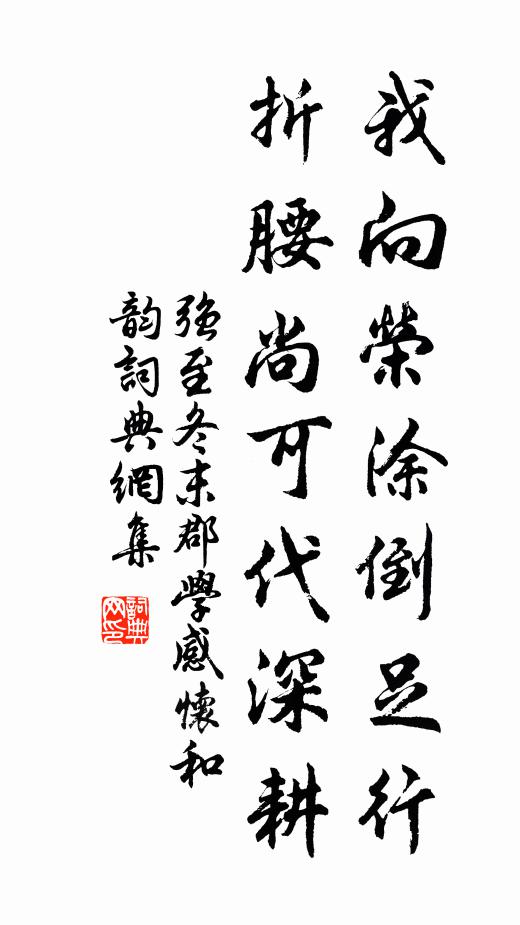 我向榮涂倒足行
折腰尚可代深耕
強至冬末郡學感懷和
韵詞典網集
詞典
网印